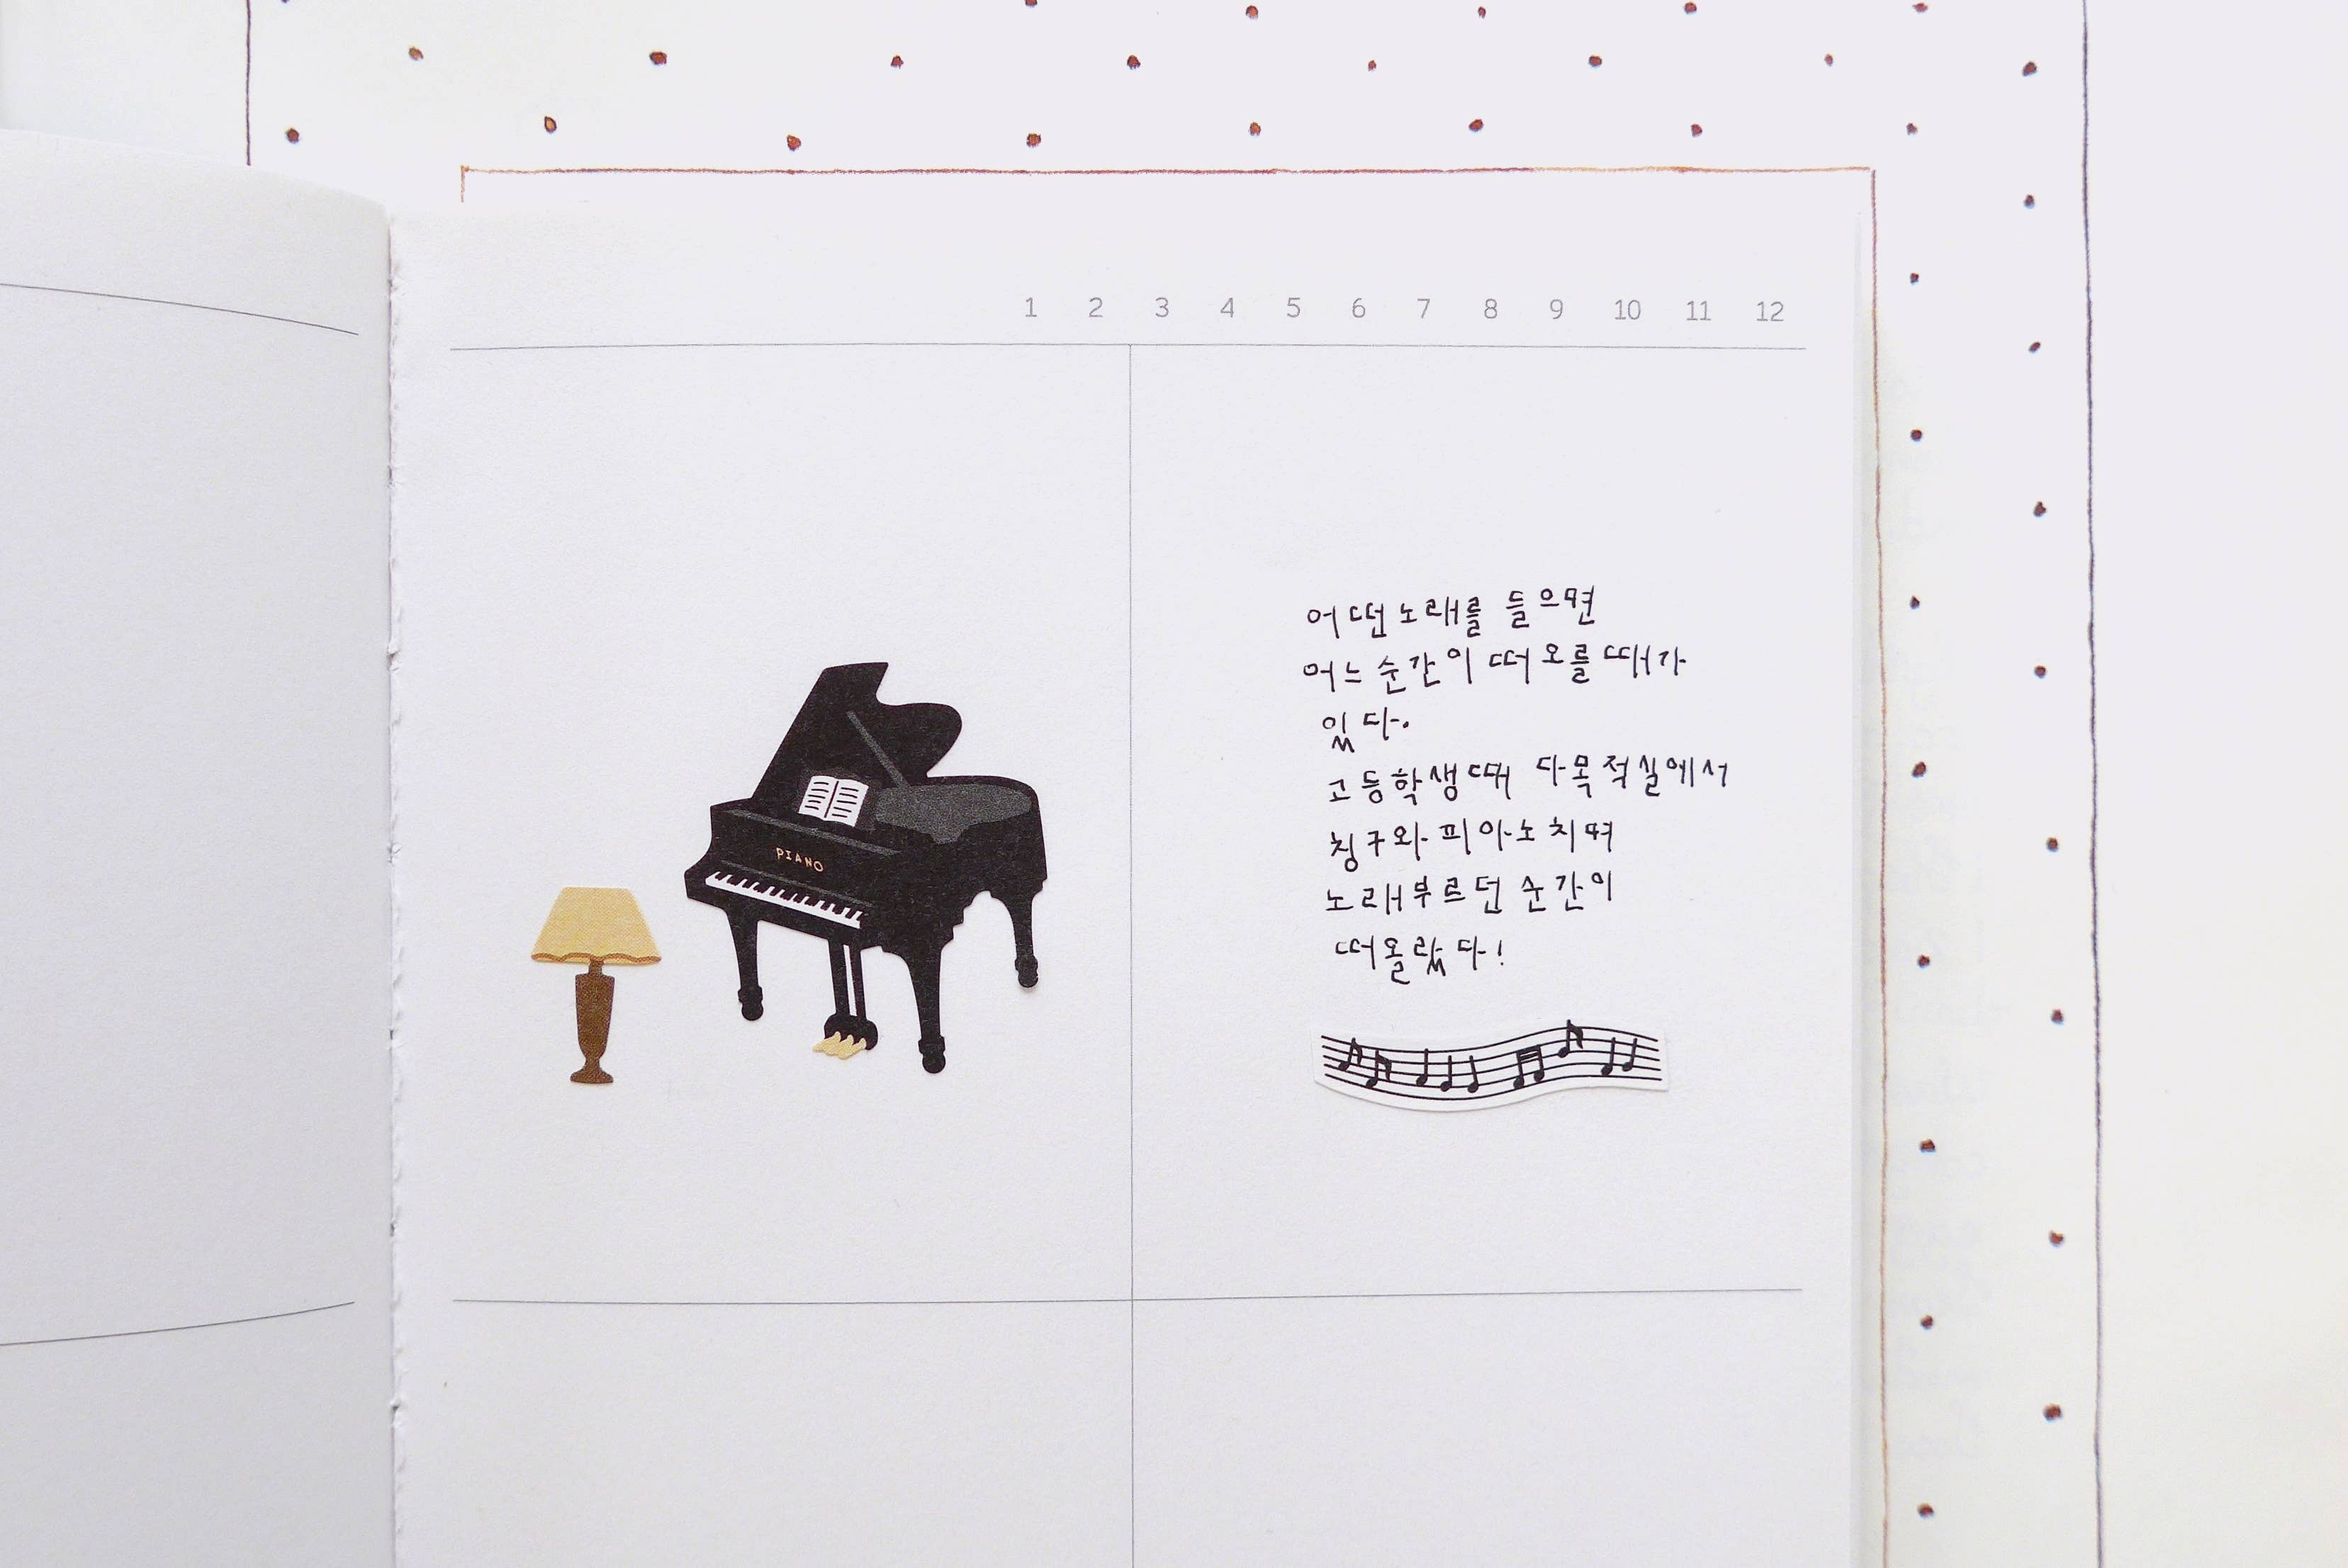 1 2 3 4 5 6 7 8 9 10 11 12
어떤 노래를 들으면
어느 순간이 떠오를 때가
있다.
고등학생때 다목적실에서
칭구와 피아노 치며
노래부르던 순간이
떠올랐다!
PIANO